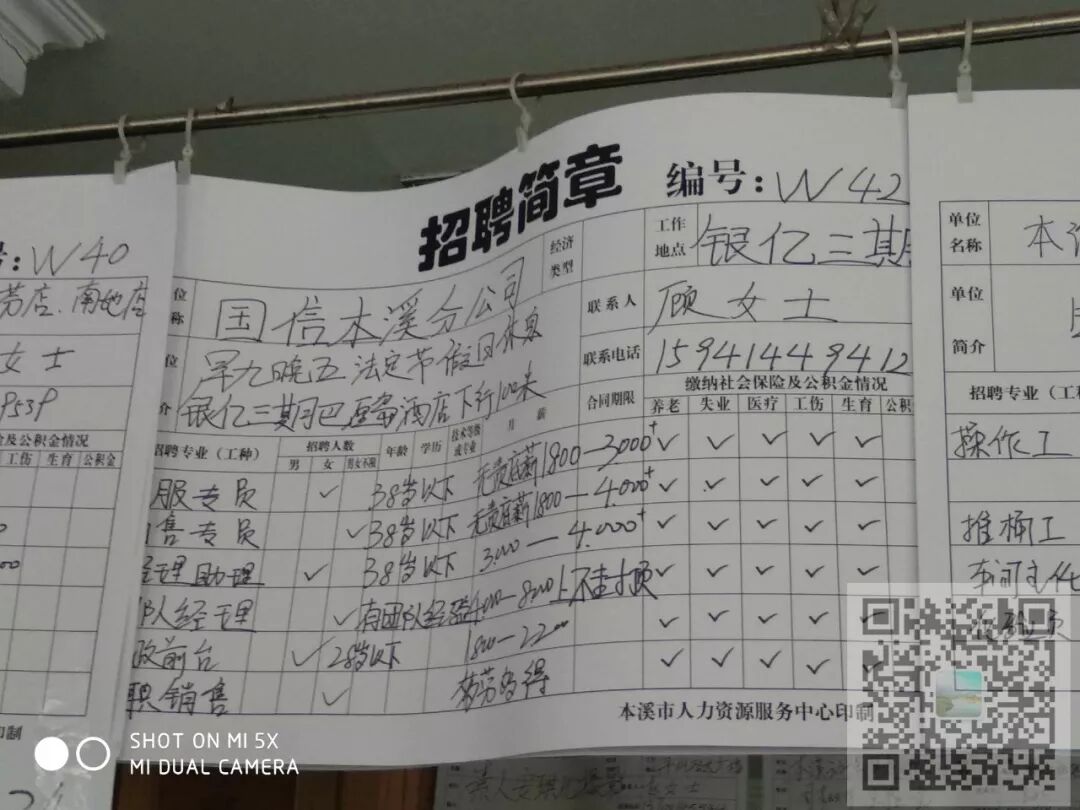 招聘简章
编号:W42
经济类型
工作地点 银亿三期
国信本溪分公司
联系人 顾女士
早九晚五 法定节假日休息
联系电话 15941449412
银亿三期巴厘岛酒店下行100米
合同期限 缴纳社会保险及公积金情况
养老 失业 医疗 工伤 生育 公积
招聘专业(工种) 招聘人数 年龄 学历 技术等级或专业 月薪
男 女 男女不限
服专员 ✓ 38岁以下 无责底薪1800—3000+ ✓ ✓ ✓ ✓ ✓
售专员 ✓ 38岁以下 无责底薪1800—4000+ ✓ ✓ ✓ ✓ ✓
经理助理 ✓ 38岁以下 3000—4.000+ ✓ ✓ ✓ ✓ ✓
队经理 ✓ 有团队经验 上不封顶 ✓ ✓ ✓ ✓ ✓
政前台 ✓ 28岁以下 1800—2200 ✓ ✓ ✓ ✓ ✓
职销售 ✓ 多劳多得 ✓ ✓ ✓ ✓ ✓
本溪市人力资源服务中心印制
号:W40
女士
9539
险及公积金情况
工伤 生育 公积金
印制
单位名称 本
单位简介
招聘专业(工
操作工
推桶工
SHOT ON MI 5X
MI DUAL CAMERA